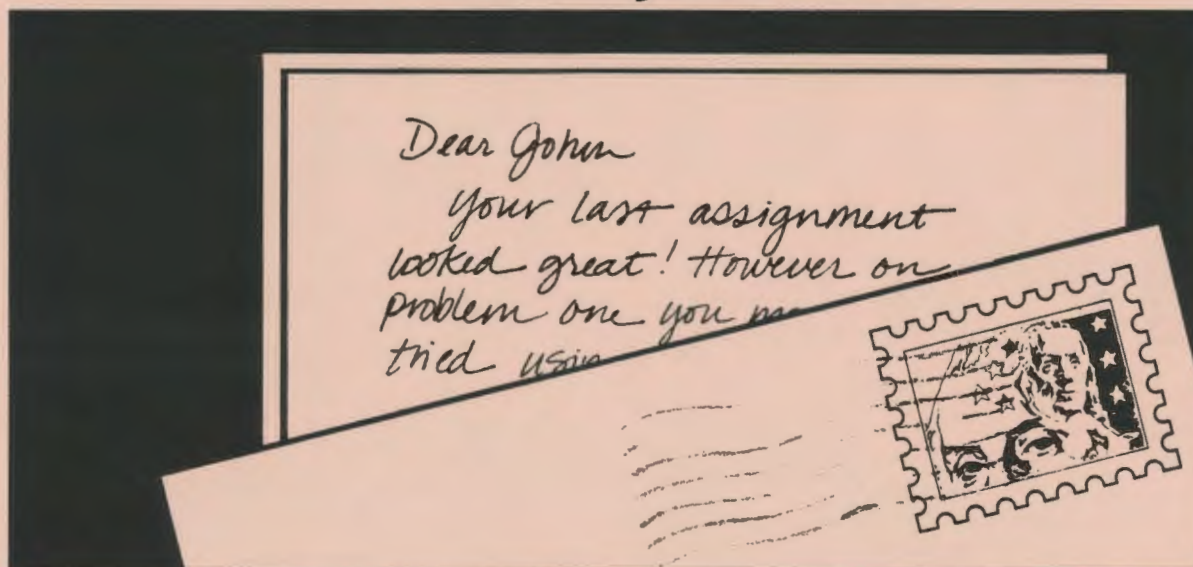 Dear John
your last assignment
looked great! However on
problem one you
tried